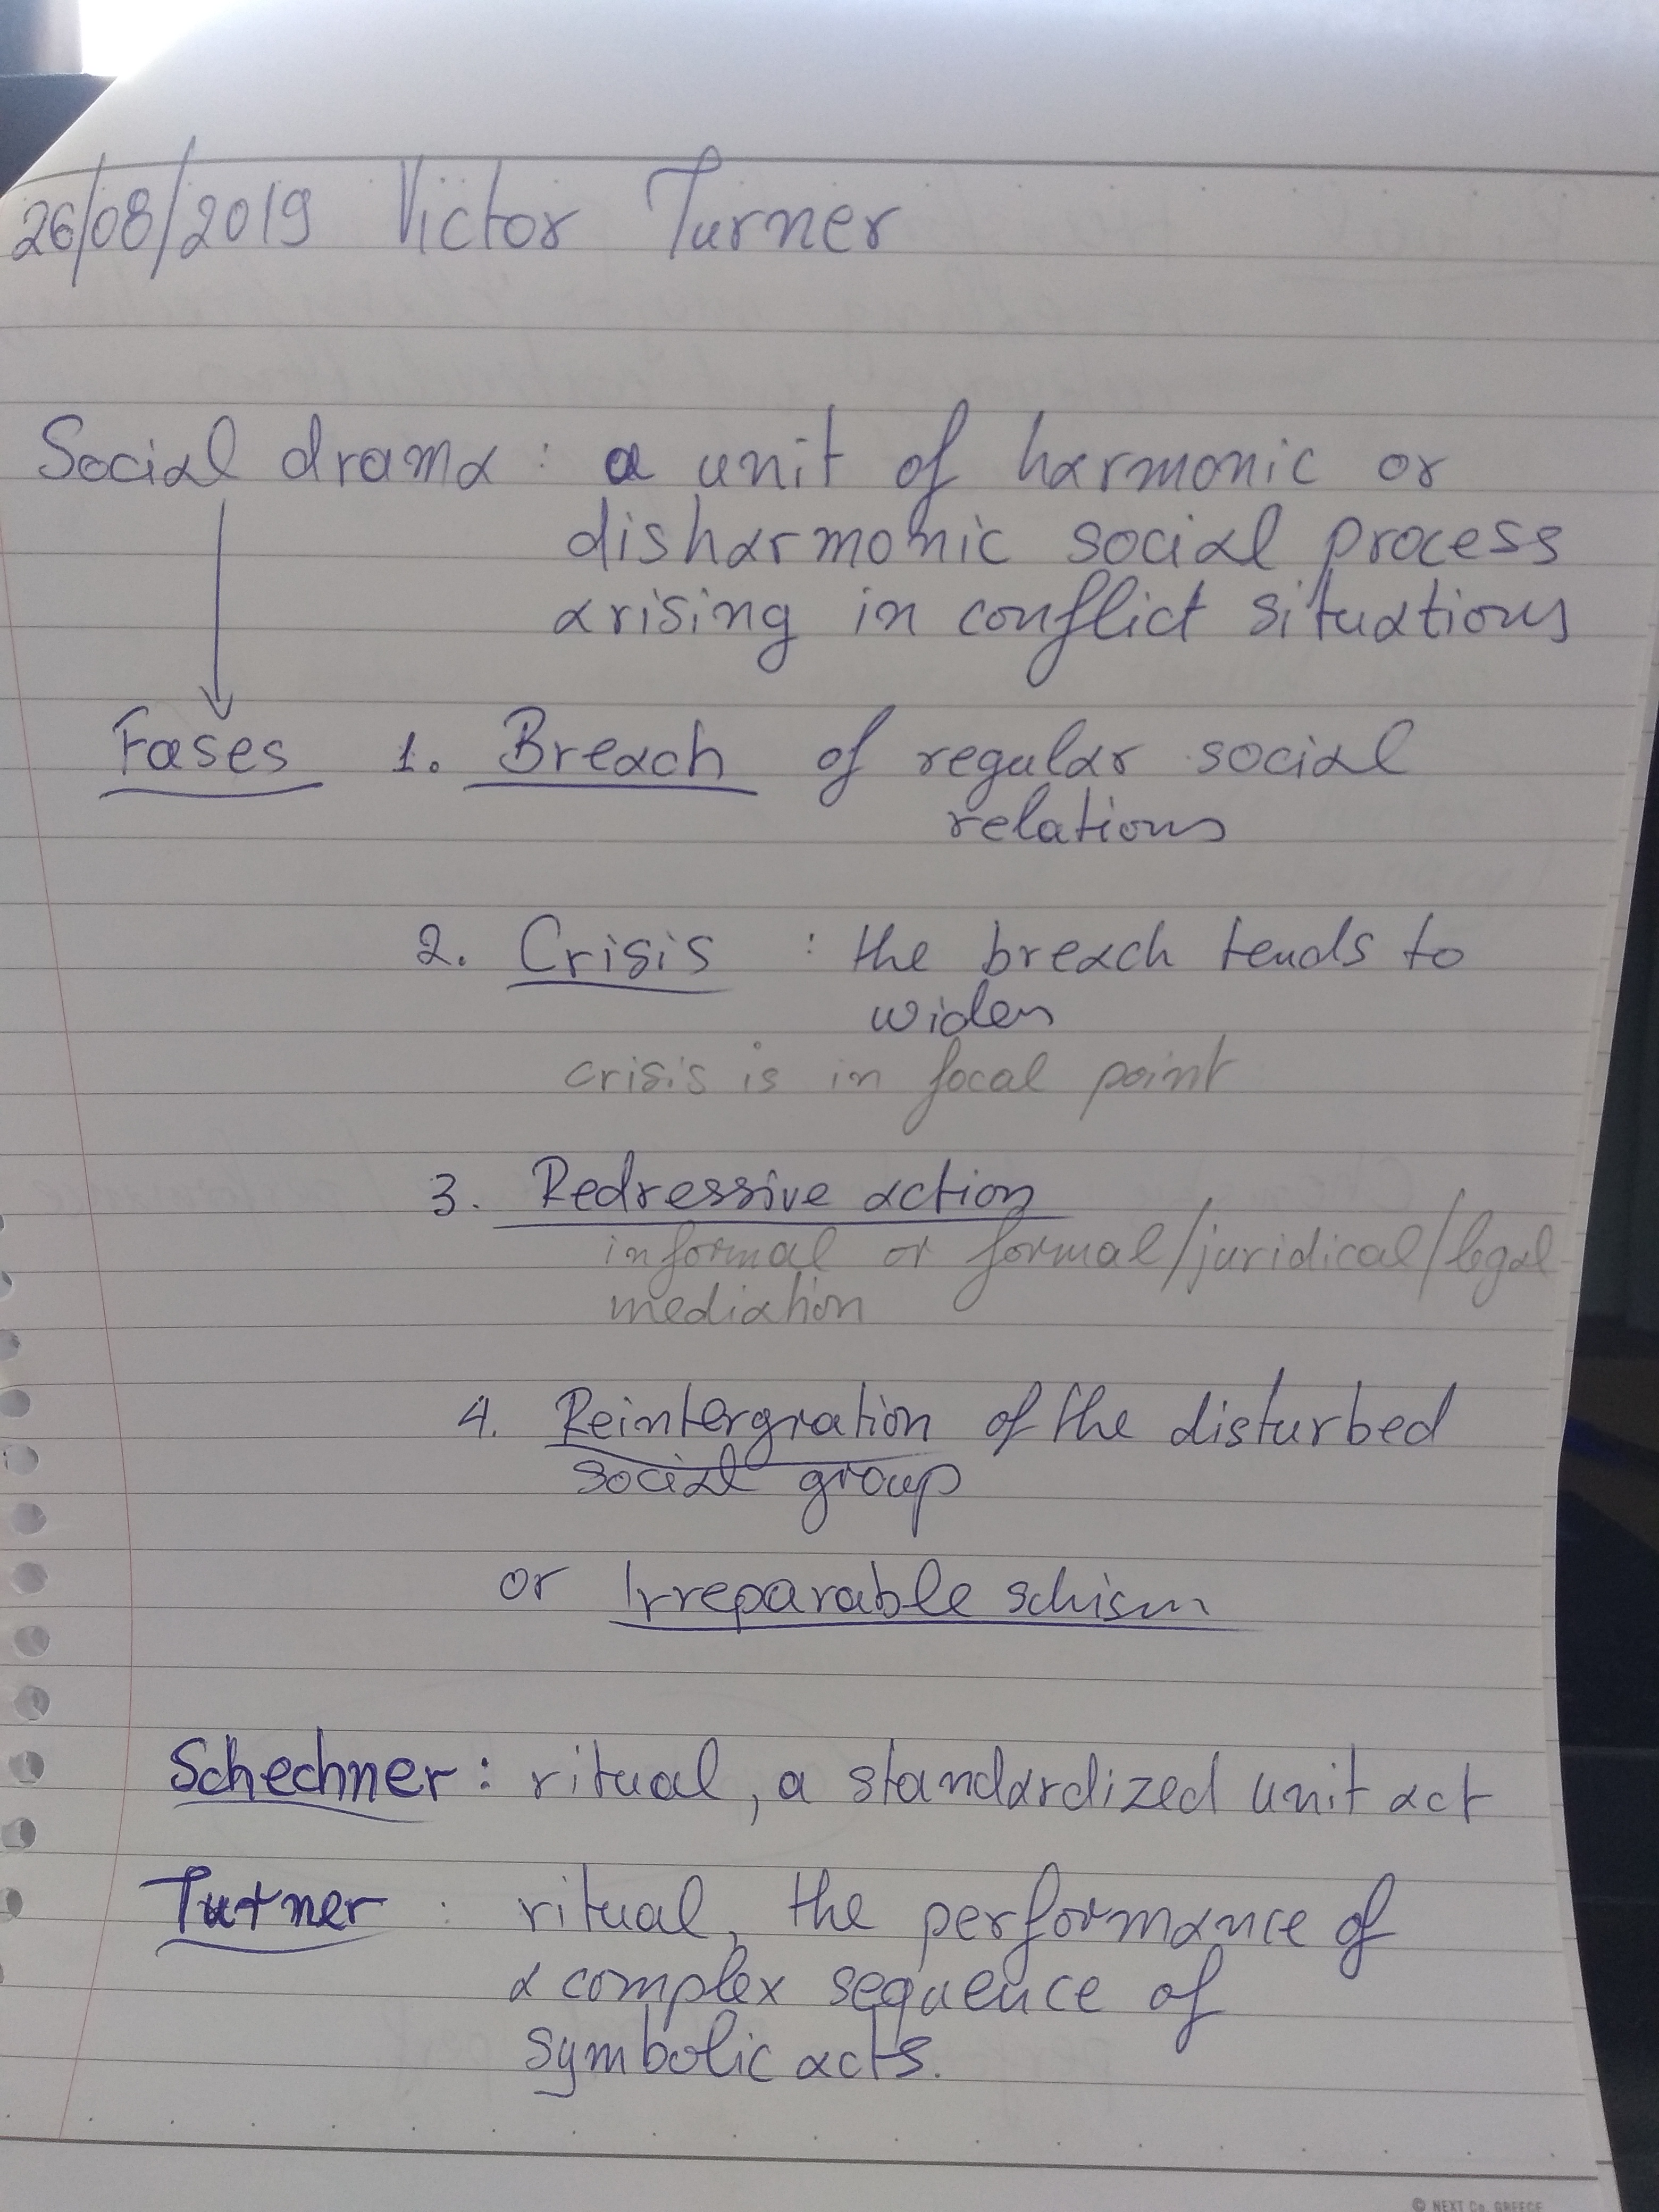 26/08/2019 Victor Turner
Social drama : a unit of harmonic or
disharmonic social process
arising in conflict situations
Fases 1. Breach of regular social
relations
2. Crisis : the breach tends to
widen
crisis is in focal point
3. Redressive action
informal or formal/juridical/legal
mediation
4. Reintergration of the disturbed
social group
or Irreparable schism
Schechner: ritual, a standardized unit act
Turner : ritual, the performance of
a complex sequence of
symbolic acts.
© NEXT Co. GREECE